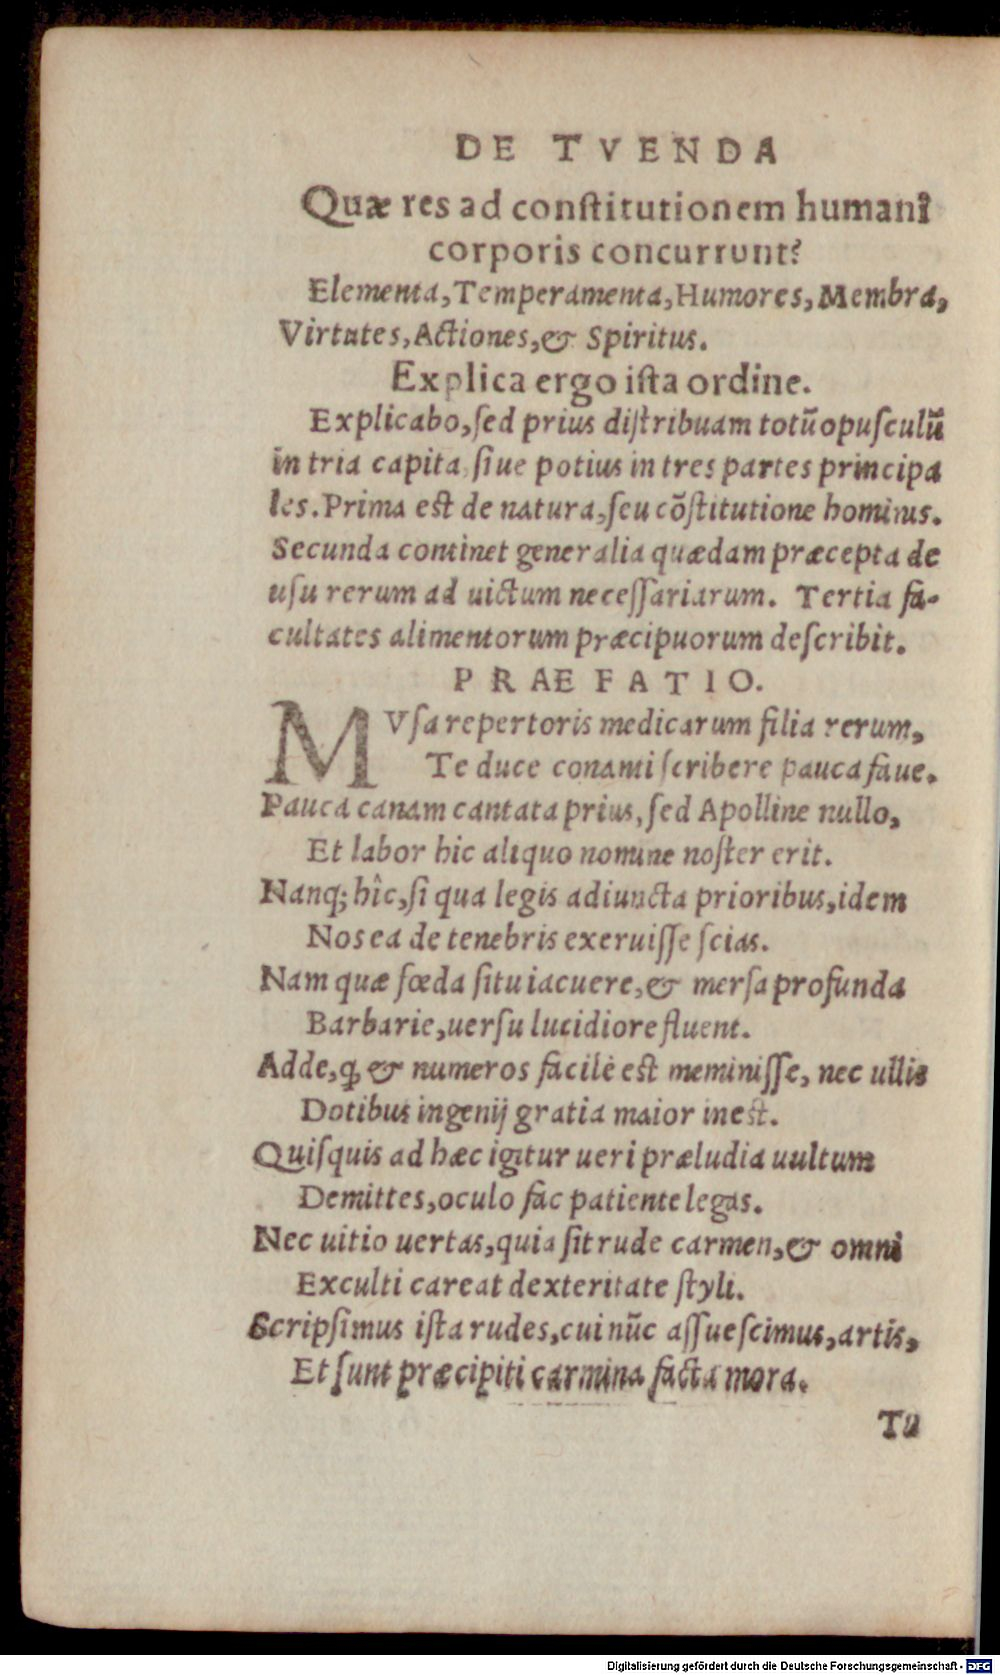 DE TVENDA
Quæ res ad conſtitutionem humani
corporis concurrunt?
Elementa, Temperamenta, Humores, Membra,
Virtutes, Actiones, & Spiritus.
Explica ergo iſta ordine.
Explicabo, ſed prius diſtribuam totũ opuſculũ
in tria capita, ſiue potius in tres partes principa
les. Prima est de natura, ſeu cõſtitutione hominis.
Secunda continet generalia quædam præcepta de
uſu rerum ad uictum neceſſariarum. Tertia fa-
cultates alimentorum præcipuorum deſcribit.
PRAEFATIO.
MVſa repertoris medicarum filia rerum,
Te duce conanti ſcribere pauca faue.
Pauca canam cantata prius, ſed Apolline nullo,
Et labor hic aliquo nomine noſter erit.
Nanq; hîc, ſi qua legis adiuncta prioribus, idem
Nos ea de tenebris exeruiſſe ſcias.
Nam quæ fœda ſitu iacuere, & merſa profunda
Barbarie, uerſu lucidiore fluent.
Adde, ꝙ & numeros facilè est meminiſſe, nec ullis
Dotibus ingenij gratia maior inest.
Quiſquis ad hæc igitur ueri præludia uultum
Demittes, oculo fac patiente legas.
Nec uitio uertas, quia ſit rude carmen, & omni
Exculti careat dexteritate ſtyli.
Scripſimus iſta rudes, cui nũc aſſueſcimus, artis,
Et ſunt præcipiti carmina facta mora.
Tu
Digitalisierung gefördert durch die Deutsche Forschungsgemeinschaft - DFG